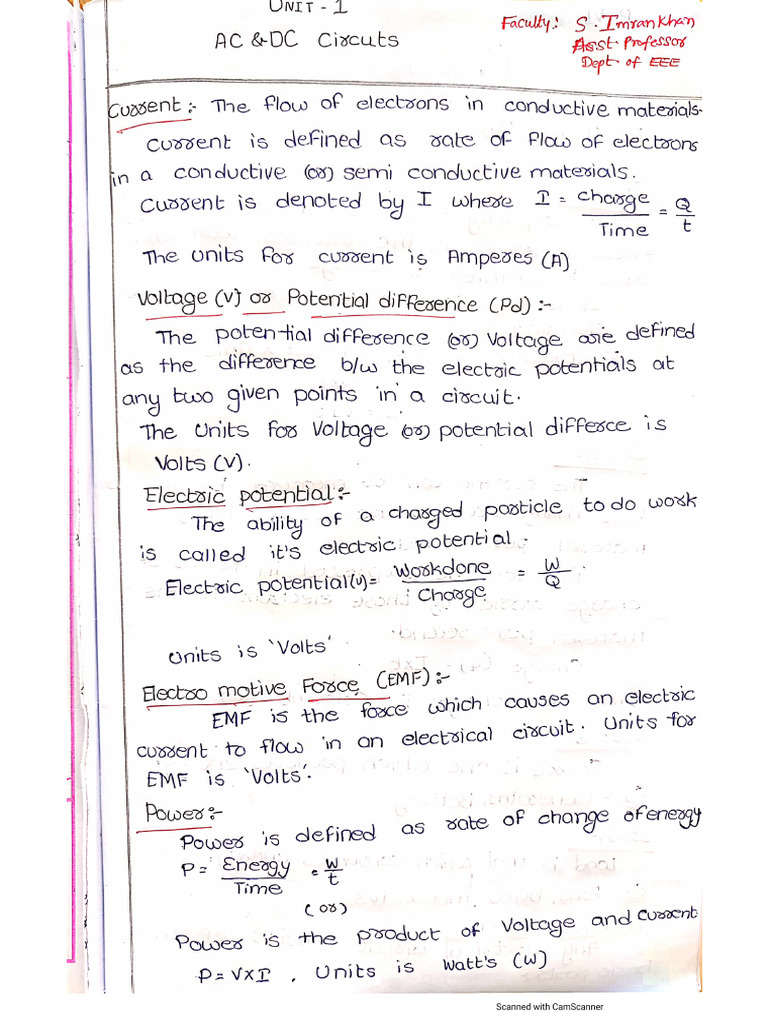 UNIT - 1
Faculty: S. Imran Khan
AC & DC Circuts
Asst. Professor
Dept of EEE
Current :- The flow of electrons in conductive materials.
Current is defined as rate of flow of electrons
in a conductive (or) semi conductive materials.
Current is denoted by I where I = Charge/Time = Q/t
The units for current is Amperes (A)
Voltage (V) or Potential difference (Pd) :-
The potential difference (or) Voltage are defined
as the difference b/w the electric potentials at
any two given points in a circuit.
The Units for Voltage (or) potential differce is
Volts (V).
Electric potential :-
The ability of a charged particle to do work
is called it's electric potential.
Electric potential (v) = Workdone/Charge = W/Q
Units is 'Volts'
Electro motive Force (EMF) :-
EMF is the force which causes an electric
current to flow in an electrical circuit. Units for
EMF is 'Volts'.
Power :-
Power is defined as rate of change of energy
P = Energy/Time = W/t
(or)
Power is the product of Voltage and current
P = V x I , Units is Watt's (W)
Scanned with CamScanner